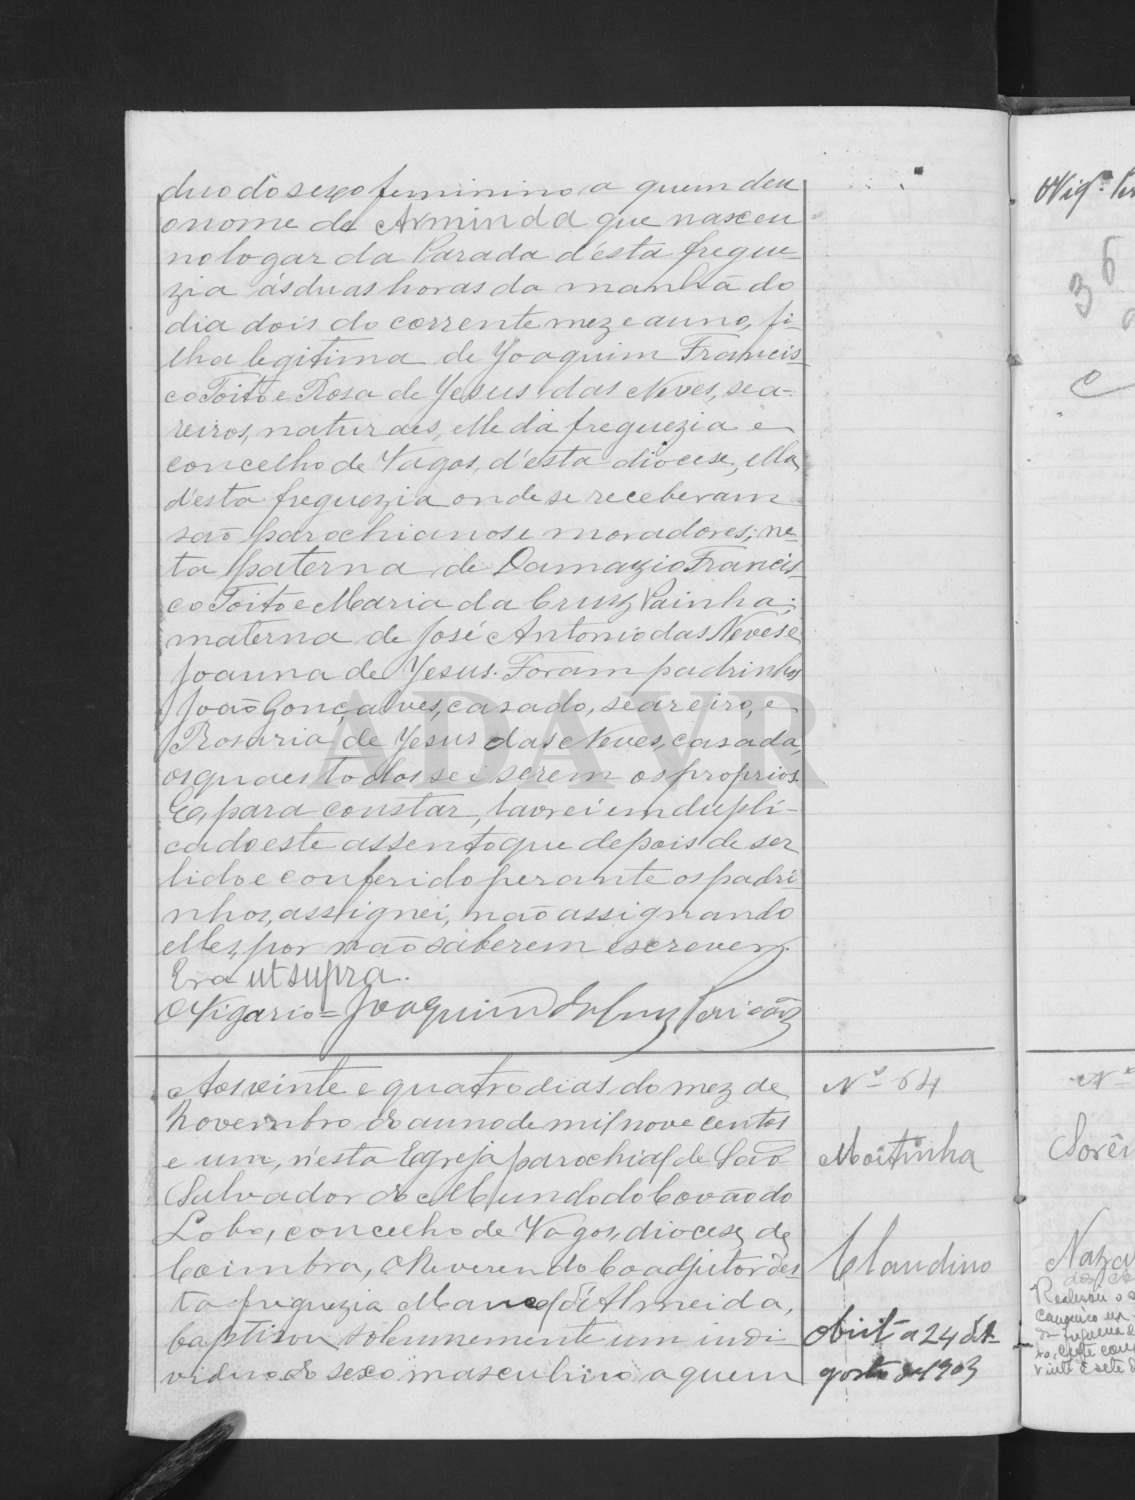 duo do sexo feminino a quem deu
o nome de Arminda que nasceu
no logar da Parada d'esta fregue-
zia ás duas horas da manhã do
dia dois do corrente mez e anno, fi-
lha legitima de Joaquim Francis-
co Toito e Rosa de Jesus das Neves, sea-
reiros, naturaes, elle da freguezia e
concelho de Vagos, d'esta diocese, ella
d'esta freguezia onde se receberam
são parochianos e moradores; ne-
ta paterna de Damazio Francis-
co Toito e Maria da Cruz Painha;
materna de José Antonio das Neves e
Joanna de Jesus. Foram padrinhos
João Gonçalves, casado, seareiro, e
Rosaria de Jesus das Neves, casada,
os quaes todos sei serem os proprios.
E, para constar, lavrei em dupli-
cado este assento que depois de ser
lido e conferido perante os padri-
nhos, assignei, não assignando
elles, por não saberem escrever.
Era ut supra.
O Vigario = Joaquim da Cruz Pericão
Aos vinte e quatro dias do mez de
Novembro do anno de mil nove centos
e um, n'esta Egreja parochial de São
Salvador do Mundo do Covão do
Lobo, concelho de Vagos, diocese de
Coimbra, o Reverendo Coadjutor d'es-
ta freguezia Manoel d'Almeida,
baptisou solemnemente um indi-
viduo do sexo masculino a quem
Nº 64
Moitinha
Claudino
Obiit a 24 d'A-
gosto de 1903
O Vigº
36
Nº
Sorê
ADAVR